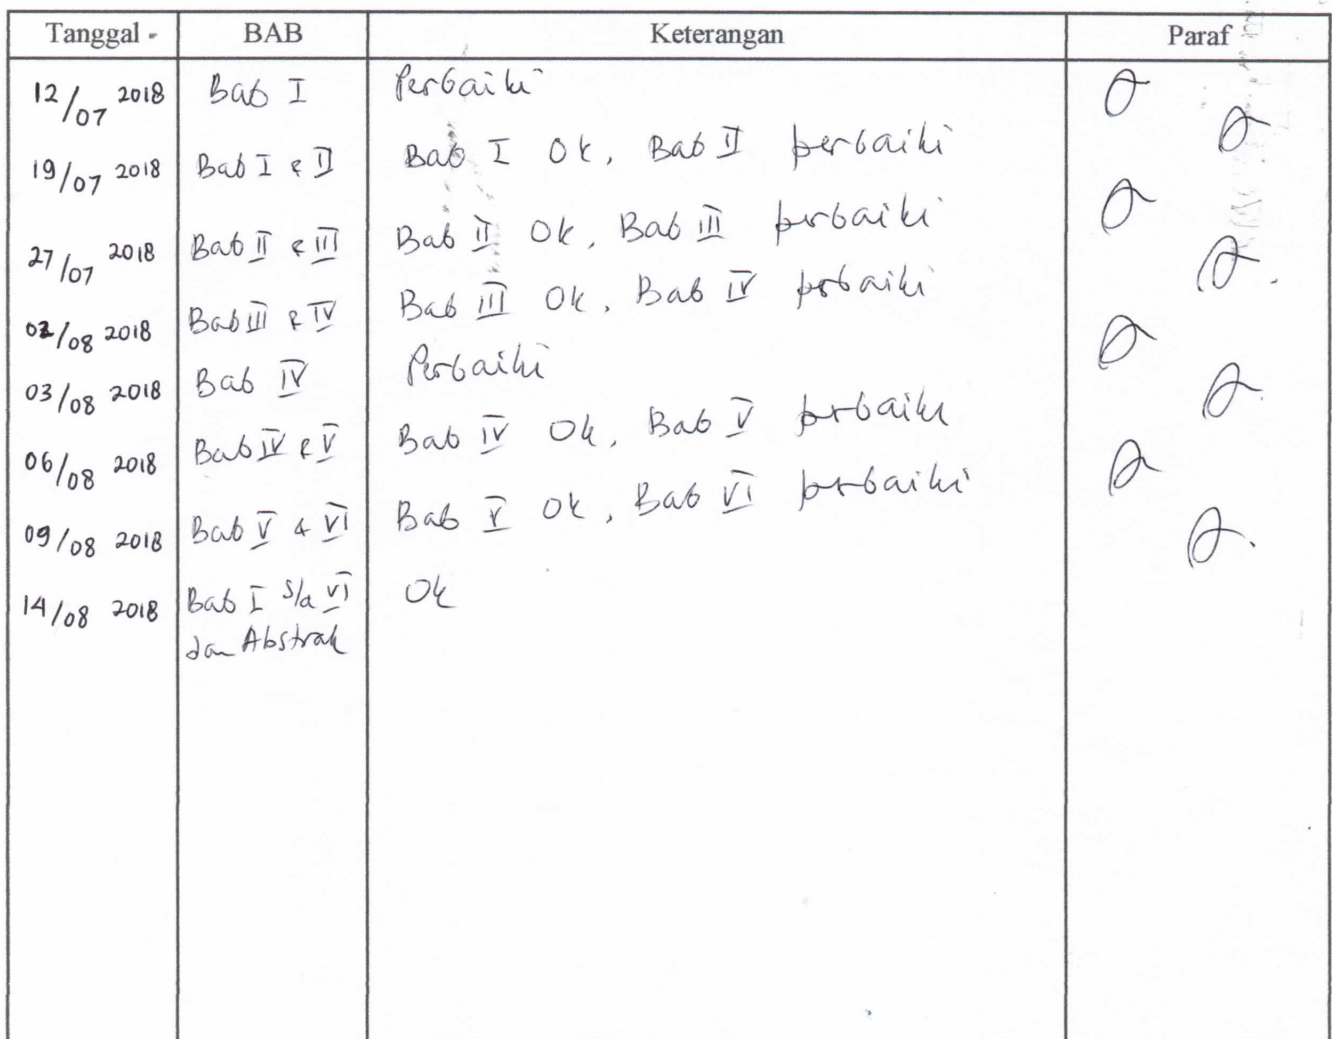 Tanggal BAB Keterangan Paraf
12/07 2018 Bab I Perbaiki
19/07 2018 Bab I & II Bab I Ok, Bab II perbaiki
27/07 2018 Bab II & III Bab II Ok, Bab III perbaiki
02/08 2018 Bab III & IV Bab III Ok, Bab IV perbaiki
03/08 2018 Bab IV Perbaiki
06/08 2018 Bab IV & V Bab IV Ok, Bab V perbaiki
09/08 2018 Bab V & VI Bab V Ok, Bab VI perbaiki
14/08 2018 Bab I s/d VI Ok
dan Abstrak